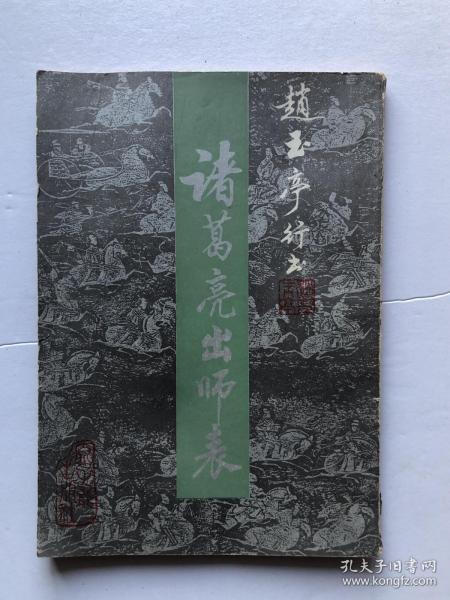 趙玉亭行书
诸葛亮出师表
孔夫子旧书网
www.kongfz.com